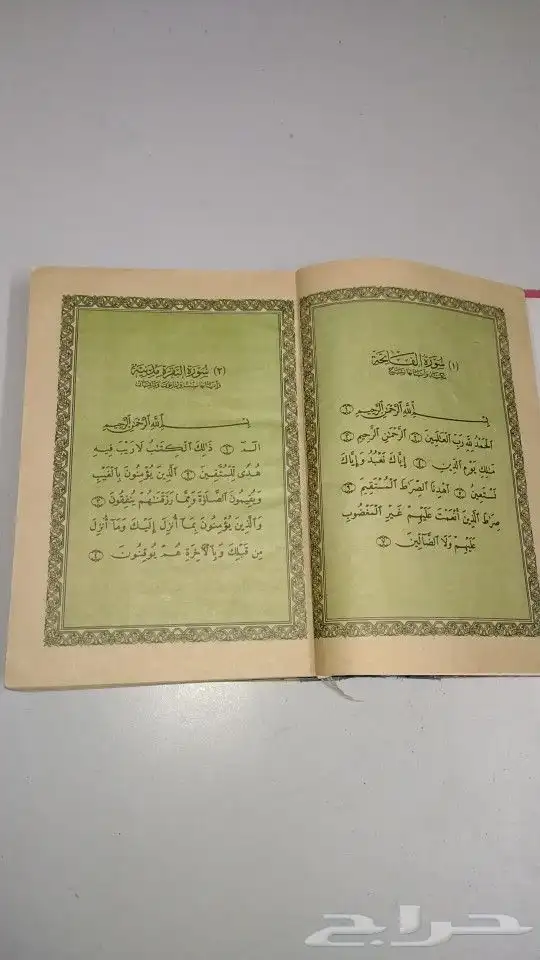 (١) سُورَةُ الفَاتِحَة
بِسْمِ اللَّهِ الرَّحْمَٰنِ الرَّحِيمِ ١
الْحَمْدُ لِلَّهِ رَبِّ الْعَالَمِينَ ٢ الرَّحْمَٰنِ الرَّحِيمِ ٣
مَالِكِ يَوْمِ الدِّينِ ٤ إِيَّاكَ نَعْبُدُ وَإِيَّاكَ
نَسْتَعِينُ ٥ اهْدِنَا الصِّرَاطَ الْمُسْتَقِيمَ ٦
صِرَاطَ الَّذِينَ أَنْعَمْتَ عَلَيْهِمْ غَيْرِ الْمَغْضُوبِ
عَلَيْهِمْ وَلَا الضَّالِّينَ ٧
(٢) سُورَةُ البَقَرَةِ مَدَنِيَّة
بِسْمِ اللَّهِ الرَّحْمَٰنِ الرَّحِيمِ
الٓمٓ ١ ذَٰلِكَ الْكِتَٰبُ لَا رَيْبَ فِيهِ
هُدًى لِّلْمُتَّقِينَ ٢ الَّذِينَ يُؤْمِنُونَ بِالْغَيْبِ
وَيُقِيمُونَ الصَّلَاةَ وَمِمَّا رَزَقْنَٰهُمْ يُنفِقُونَ ٣
وَالَّذِينَ يُؤْمِنُونَ بِمَا أُنزِلَ إِلَيْكَ وَمَا أُنزِلَ
مِن قَبْلِكَ وَبِالْآخِرَةِ هُمْ يُوقِنُونَ ٤
حراج